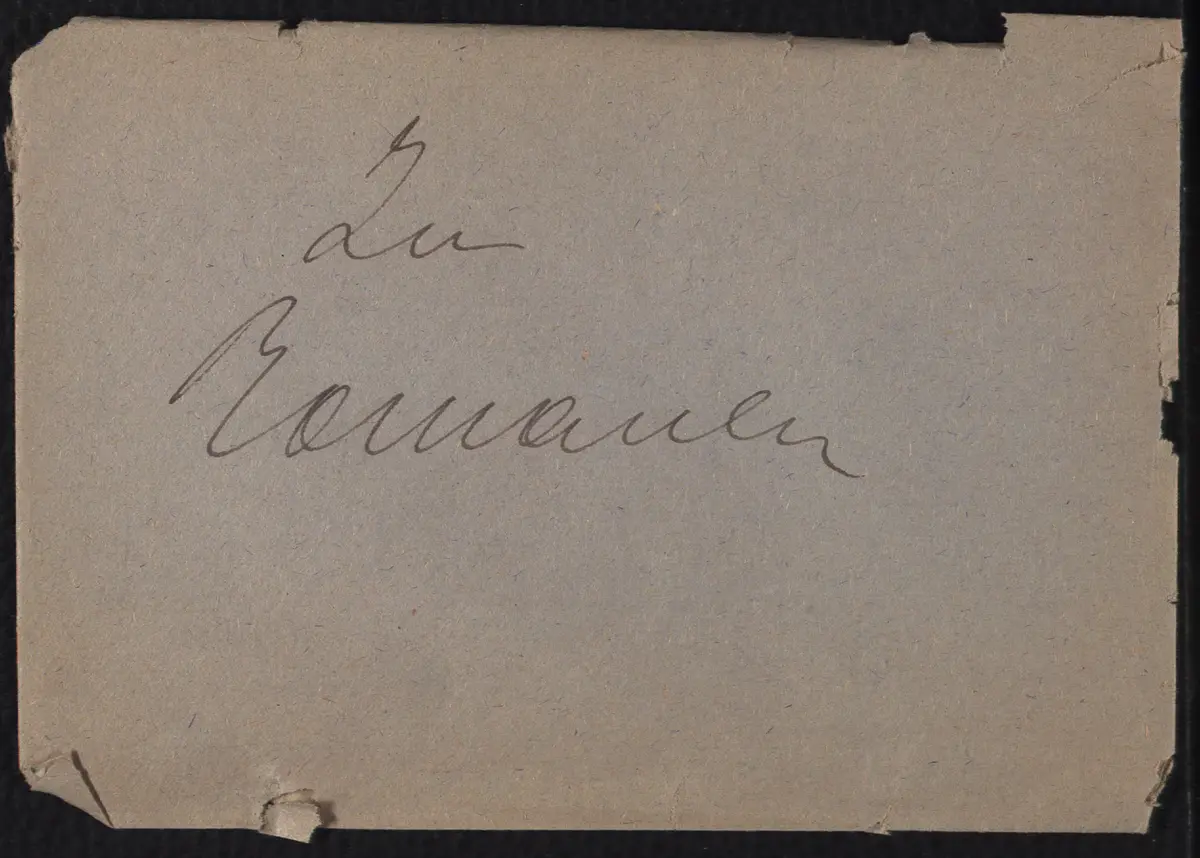 Zu
Romanen